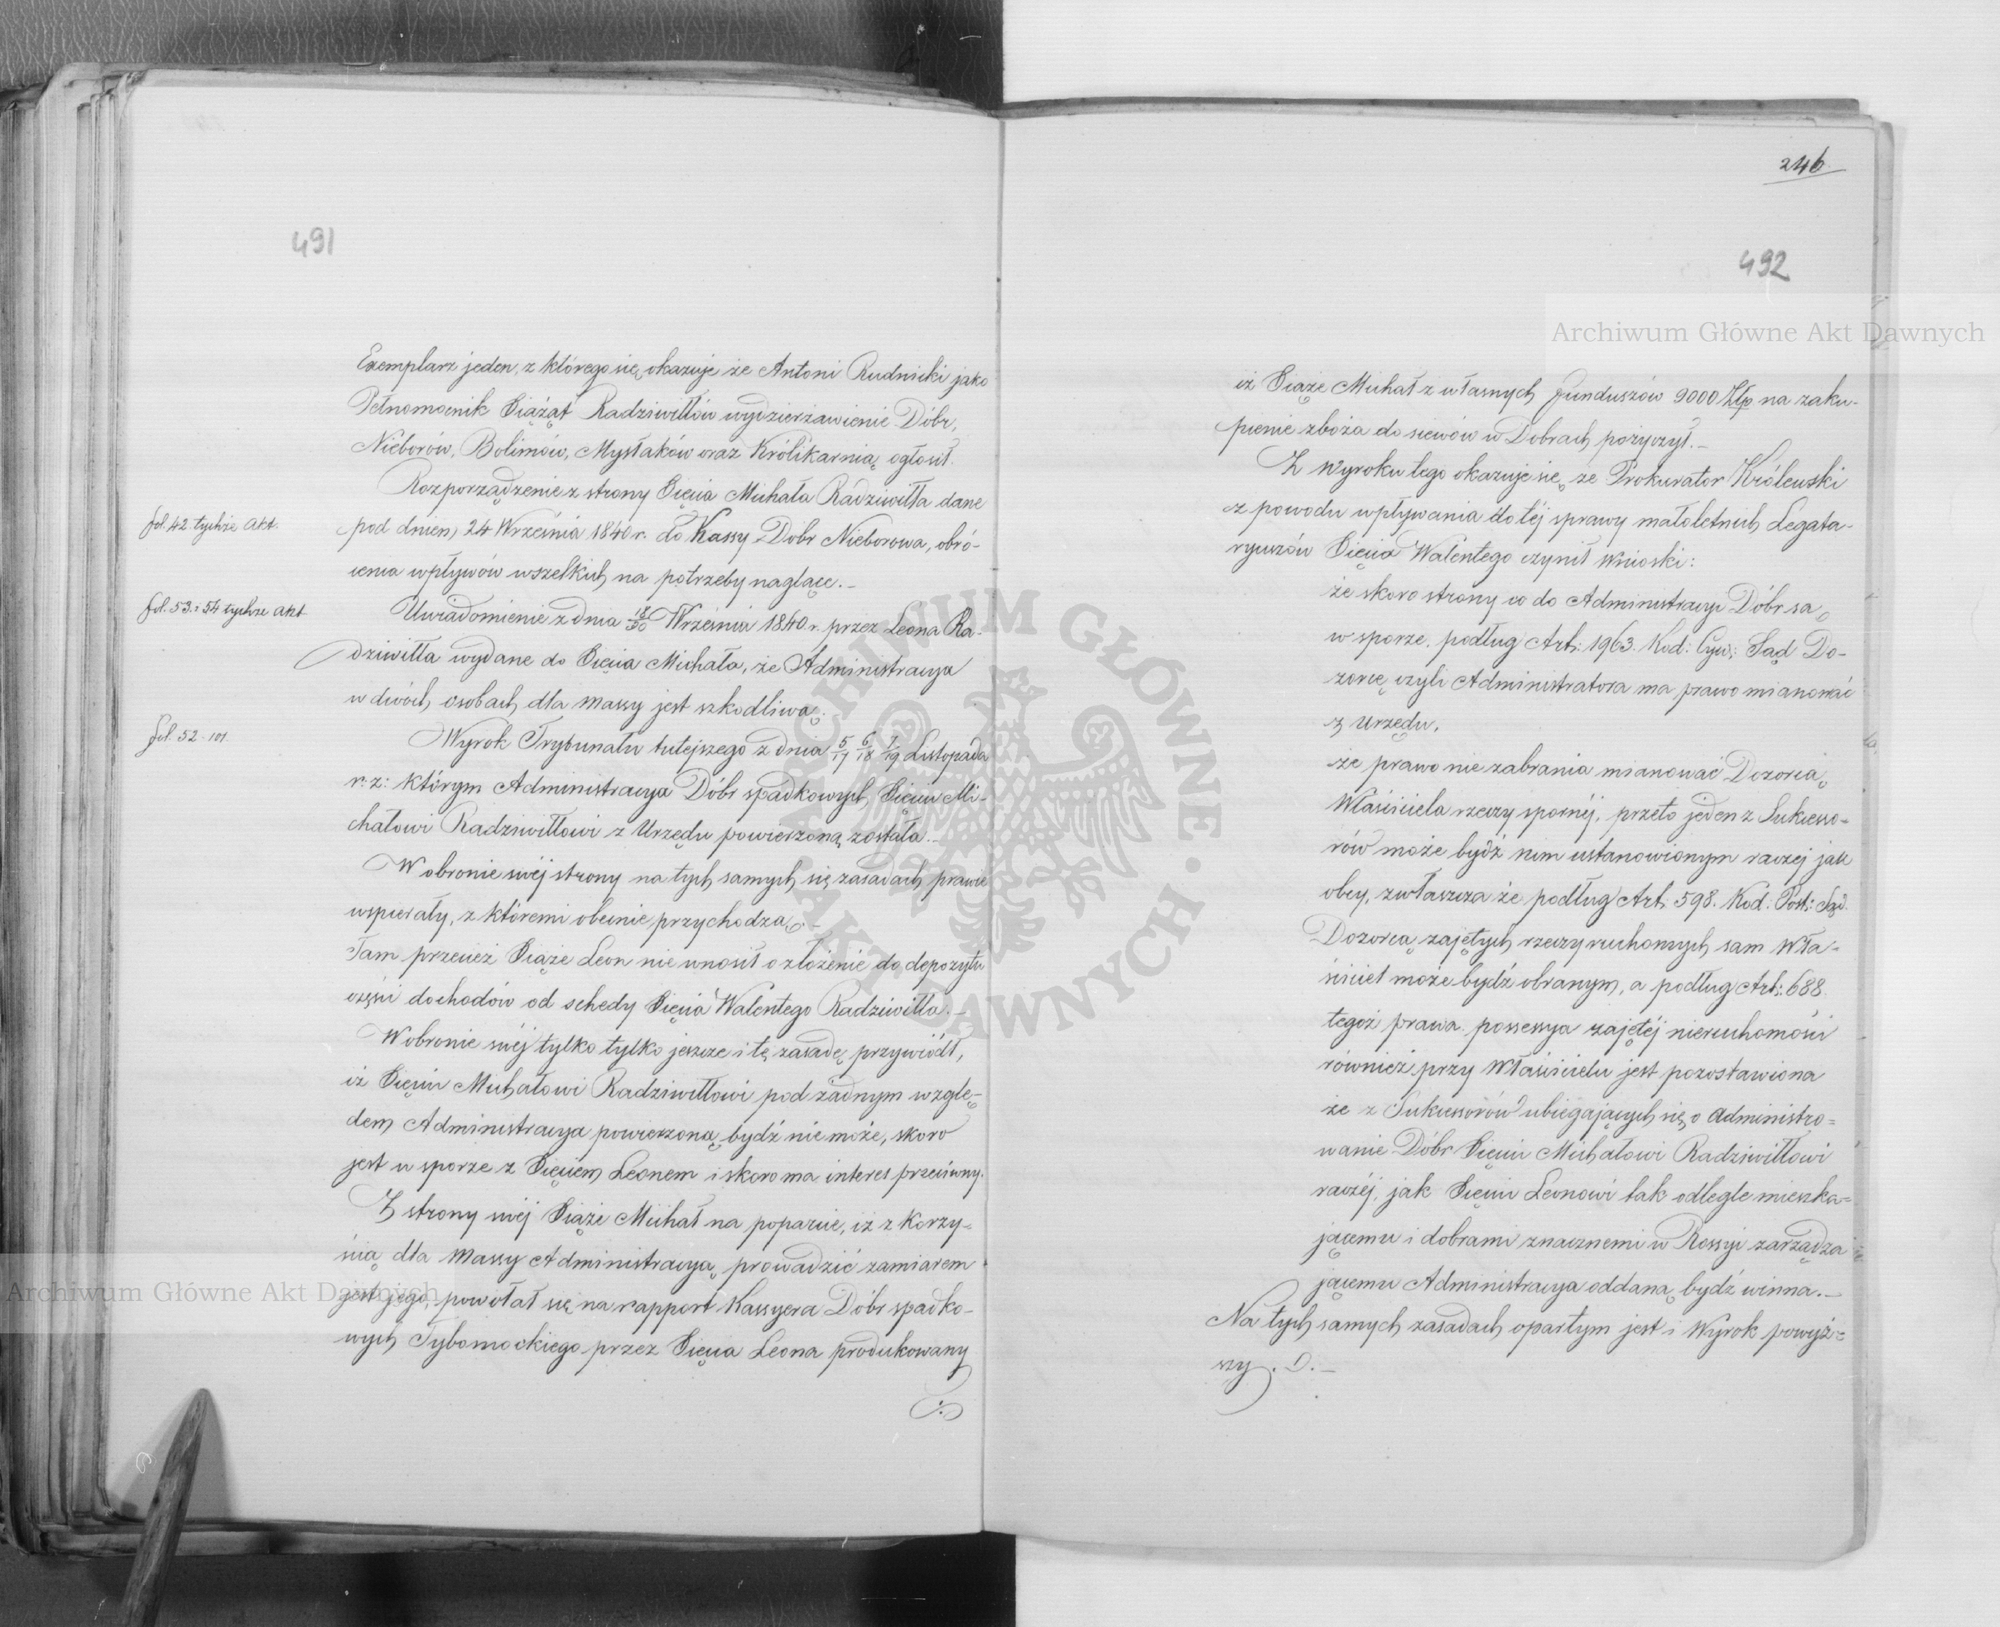 491
Exemplarz jeden, z którego się okazuje że Antoni Rudnicki jako
Pełnomocnik Xiążąt Radziwiłłów wydzierżawienie Dóbr,
Nieborów, Bolimów, Mysłaków oraz Królikarnią ogłosił.
Rozporządzenie z strony Xięcia Michała Radziwiłła dane
fol. 42 tychże akt.
pod dniem 24 Września 1840 r. do Kassy Dóbr Nieborowa, obró-
cenia wpływów wszelkich na potrzeby naglące.—
fol. 53. i 54 tychże akt
Uwiadomienie z dnia 18/30 Września 1840 r. przez Leona Ra-
dziwiłła wydane do Xięcia Michała, że Administracya
w dwóch osobach dla massy jest szkodliwą.
fol. 52-101.
Wyrok Trybunału tutejszego z dnia 5/17 6/18 7/19 Listopada
r: z: którym Administracya Dóbr spadkowych Xięciu Mi-
chałowi Radziwiłłowi z Urzędu powierzoną została.—
W obronie swéj strony na tych samych się zasadach prawie
wspierały, z któremi obecnie przychodzą.—
Tam przecież Xiąże Leon nie wnosił o złożenie do depozytu
części dochodów od schedy Xięcia Walentego Radziwiłła.—
W obronie swéj tylko tylko jeszcze i tę zasadę przywiódł,
iż Xięciu Michałowi Radziwiłłowi pod żadnym wzglę-
dem Administracya powierzoną bydź nie może, skoro
jest w sporze z Xięciem Leonem i skoro ma interes przeciwny.
Z strony swéj Xiąże Michał na poparcie, iż z korzy-
ścią dla massy Administracyą prowadzić zamiarem
jest jego, powołał się na rapport Kassyera Dóbr spadko-
wych Tybomockiego przez Xięcia Leona produkowany
246
492
iż Xiąże Michał z własnych funduszów 9000 Złp na zaku-
pienie zboża do siewów w Dobrach pożyczył.—
Z wyroku tego okazuje się że Prokurator Królewski
z powodu wpływania do téj sprawy małoletnich Legata-
ryuszów Xięcia Walentego czynił wnioski:
że skoro strony co do Administracyi Dóbr są
w sporze, podług Art: 1963. Kod: Cyw: Sąd Do-
zorcę czyli Administratora ma prawo mianować
z urzędu,
że prawo nie zabrania mianować Dozorcą
Właściciela rzeczy spornéj, przeto jeden z Sukcesso-
rów może bydź nim ustanowionym raczej jak
obcy, zwłaszcza że podług Art: 598. Kod: Post: Sąd.
Dozorcą zajętych rzeczy ruchomych sam Wła-
ściciel może bydź obranym, a podług Art: 688.
tegoż prawa possessya zajętéj nieruchomości
również przy Właścicielu jest pozostawiona
że z Sukcessorów ubiegających się o administro-
wanie Dóbr Xięciu Michałowi Radziwiłłowi
raczéj, jak Xięciu Leonowi tak odlegle mieszka-
jącemu i dobrami znacznemi w Rossyi zarządza
jącemu Administracya oddaną bydź winna.—
Na tych samych zasadach opartym jest i Wyrok powyż-
szy. D.—
Archiwum Główne Akt Dawnych
Archiwum Główne Akt Dawnych
ARCHIWUM GŁÓWNE · AKT DAWNYCH ·